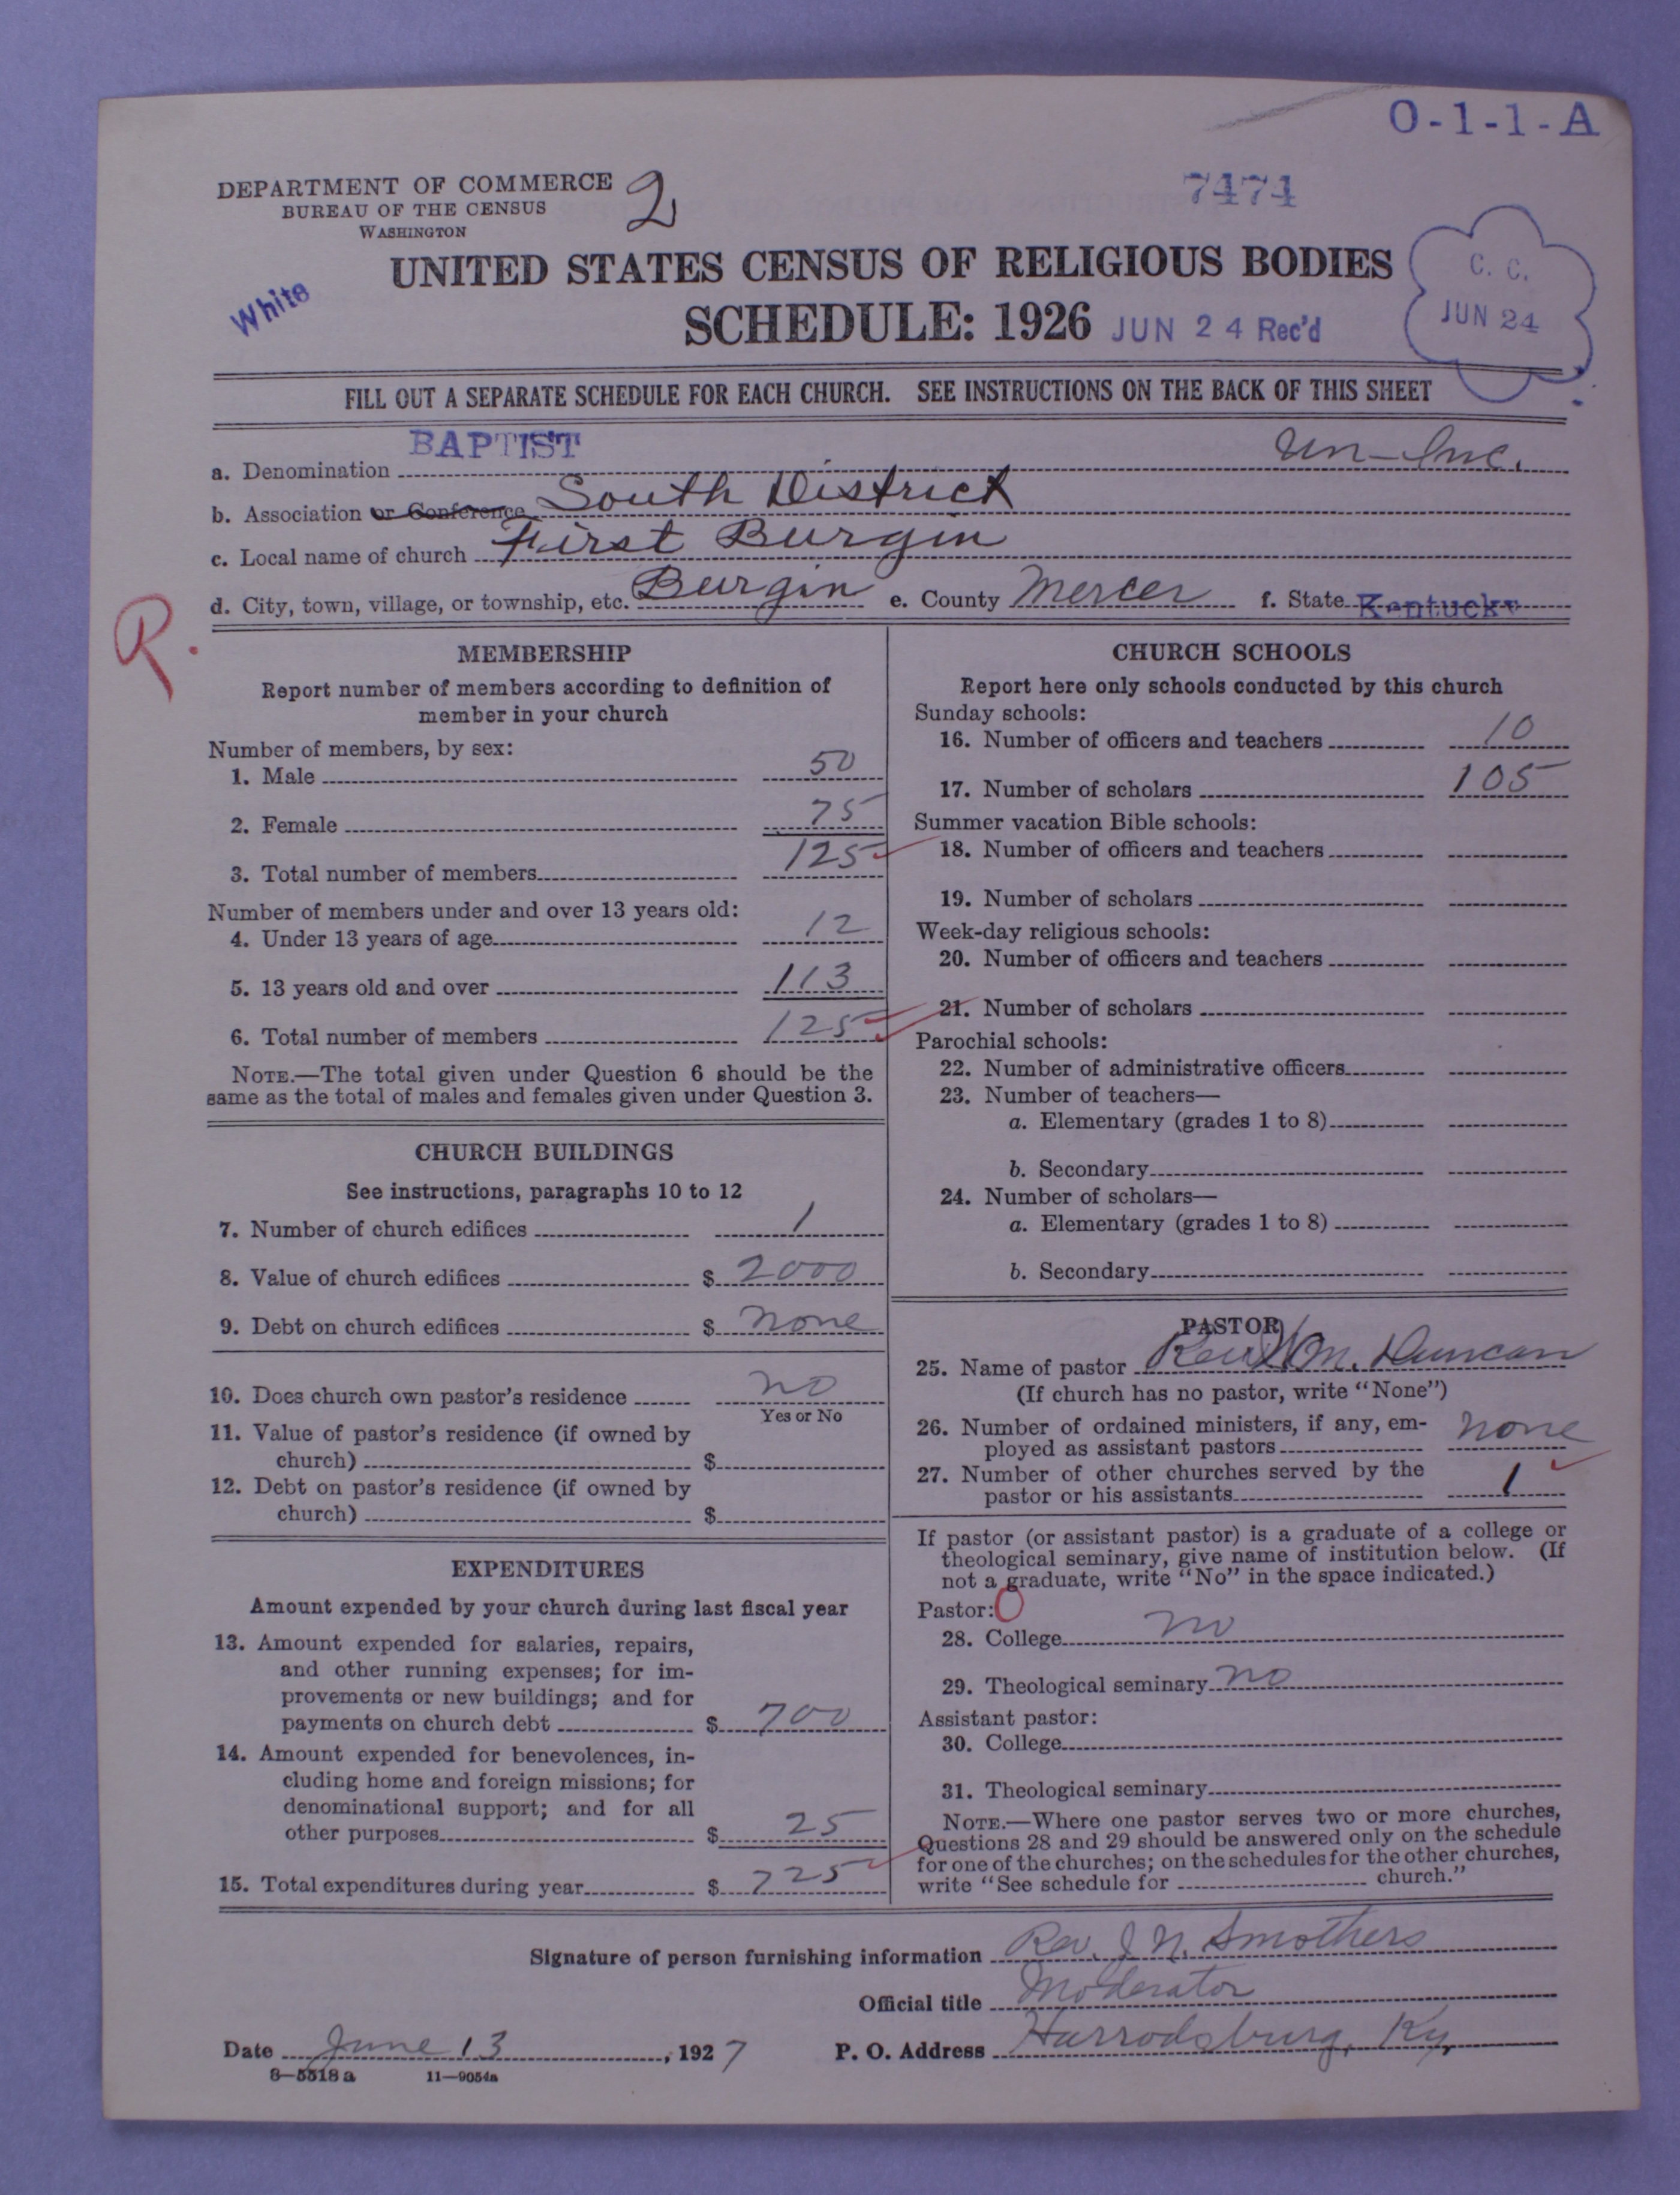 O-1-1-A
DEPARTMENT OF COMMERCE 2
BUREAU OF THE CENSUS
WASHINGTON
7474
White
UNITED STATES CENSUS OF RELIGIOUS BODIES
SCHEDULE: 1926 JUN 24 Rec'd
C. C.
JUN 24
FILL OUT A SEPARATE SCHEDULE FOR EACH CHURCH. SEE INSTRUCTIONS ON THE BACK OF THIS SHEET
a. Denomination BAPTIST Un-Inc.
b. Association or Conference South District
c. Local name of church First Burgin
d. City, town, village, or township, etc. Burgin e. County Mercer f. State Kentucky
R.
MEMBERSHIP
Report number of members according to definition of
member in your church
Number of members, by sex:
1. Male 50
2. Female 75
3. Total number of members 125
Number of members under and over 13 years old:
4. Under 13 years of age 12
5. 13 years old and over 113
6. Total number of members 125
NOTE.—The total given under Question 6 should be the
same as the total of males and females given under Question 3.
CHURCH BUILDINGS
See instructions, paragraphs 10 to 12
7. Number of church edifices 1
8. Value of church edifices $ 2000
9. Debt on church edifices $ None
10. Does church own pastor's residence No
Yes or No
11. Value of pastor's residence (if owned by
church) $
12. Debt on pastor's residence (if owned by
church) $
EXPENDITURES
Amount expended by your church during last fiscal year
13. Amount expended for salaries, repairs,
and other running expenses; for im-
provements or new buildings; and for
payments on church debt $ 700
14. Amount expended for benevolences, in-
cluding home and foreign missions; for
denominational support; and for all
other purposes $ 25
15. Total expenditures during year $ 725
CHURCH SCHOOLS
Report here only schools conducted by this church
Sunday schools:
16. Number of officers and teachers 10
17. Number of scholars 105
Summer vacation Bible schools:
18. Number of officers and teachers
19. Number of scholars
Week-day religious schools:
20. Number of officers and teachers
21. Number of scholars
Parochial schools:
22. Number of administrative officers
23. Number of teachers—
a. Elementary (grades 1 to 8)
b. Secondary
24. Number of scholars—
a. Elementary (grades 1 to 8)
b. Secondary
PASTOR
25. Name of pastor Rev. Wm. Duncan
(If church has no pastor, write "None")
26. Number of ordained ministers, if any, em-
ployed as assistant pastors None
27. Number of other churches served by the
pastor or his assistants 1
If pastor (or assistant pastor) is a graduate of a college or
theological seminary, give name of institution below. (If
not a graduate, write "No" in the space indicated.)
Pastor: O
28. College No
29. Theological seminary No
Assistant pastor:
30. College
31. Theological seminary
NOTE.—Where one pastor serves two or more churches,
Questions 28 and 29 should be answered only on the schedule
for one of the churches; on the schedules for the other churches,
write "See schedule for church."
Signature of person furnishing information Rev. J. N. Smothers
Official title Moderator
Date June 13, 1927 P. O. Address Harrodsburg, Ky.
8—5518 a 11—9054a